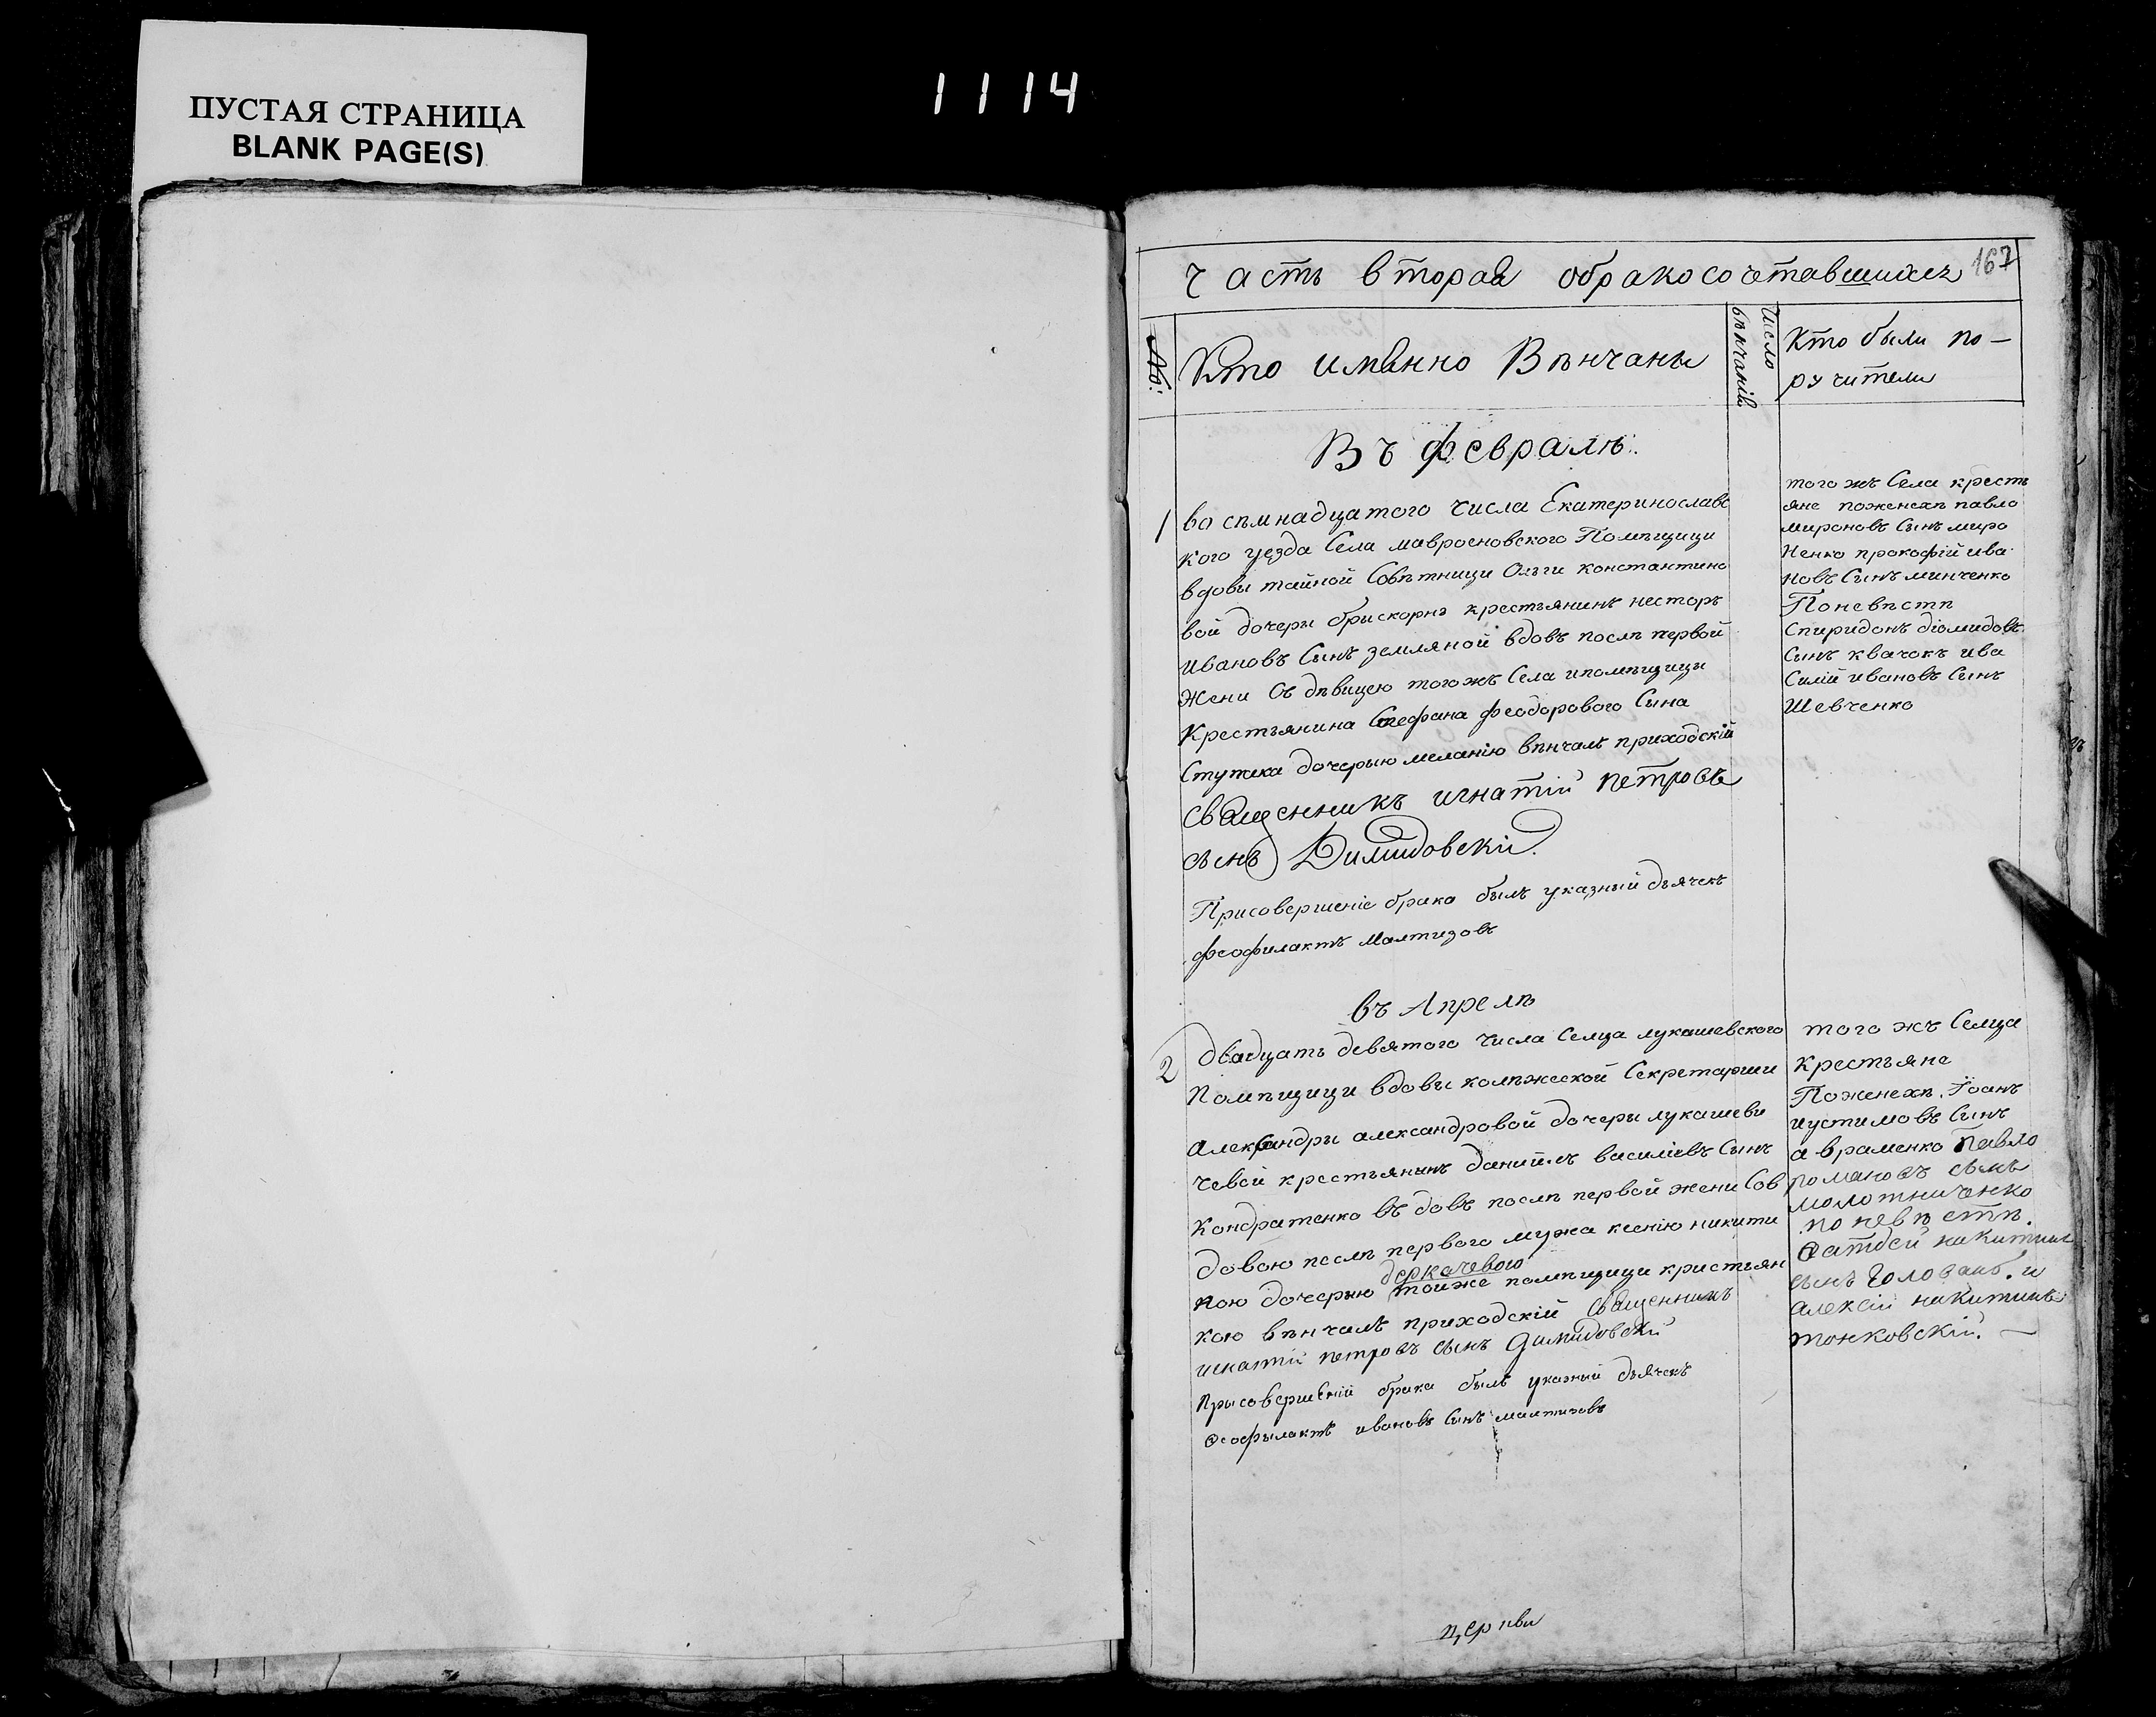 ПУСТАЯ СТРАНИЦА
BLANK PAGE(S)
1114
167
Часть вторая обракосочетавшихся
№:
Кто имянно Вѣнчаны
Число
вѣнчанія
Кто были по-
ручители
Въ февралѣ:
1
восѣмнадцатого числа Екатеринославс
кого уезда Села мавроеновского Помѣщици
вдовы тайной Совѣтници Ольги константино
вой дочеры брискорнъ крестьянинъ несторъ
ивановъ Сынъ земляной вдовъ послѣ первой
Жени Съ дѣвицею тогожъ Села ипомѣщицы
Крестьянина Стефана феодорового Сына
дочерью меланію вѣнчалъ приходскій
священникъ игнатій петровъ
сынъ Димидовскій.
Присовершеніе брака былъ указный дьячекъ
феофилактъ Малтизовъ
того жъ Села кресть
яне поженехѣ павло
мироновъ Сынъ миро
ненко прокофій ива
новъ Сынъ минченко
Поневѣстѣ
Спиридонъ діомидовъ
Сынъ квачокъ ива
Силій ивановъ Сынъ
Шевченко
въ Апрелѣ
2
двадцать девятого числа Селца лукашевского
Помѣщици вдовы колѣжеской Секретарши
Александры александровой дочеры лукашеви
чевой крестьянинъ даніилъ василіевъ Сынъ
Кондратенко въдовъ послѣ первой жени Сов
довою послѣ первого мужа ксенію никити
деркачевою
ною дочерью тойже помѣщици кристьян
кою вѣнчалъ приходскій священникъ
игнатій петровъ сынъ Димидовскій
Присовершеній брака былъ указний дьячекъ
Ѳеофылактъ ивановъ Сынъ малтизовъ
того жъ Селца
крестьяне
Поженехѣ. Іоанъ
иустимовъ Сынъ
авраменко Павло
романовъ сынъ
молотниченко
по невѣстѣ.
Ѳатѳей никитинъ
сынъ Голованъ. и
алексій никитинъ
тонковскій. —
церкви